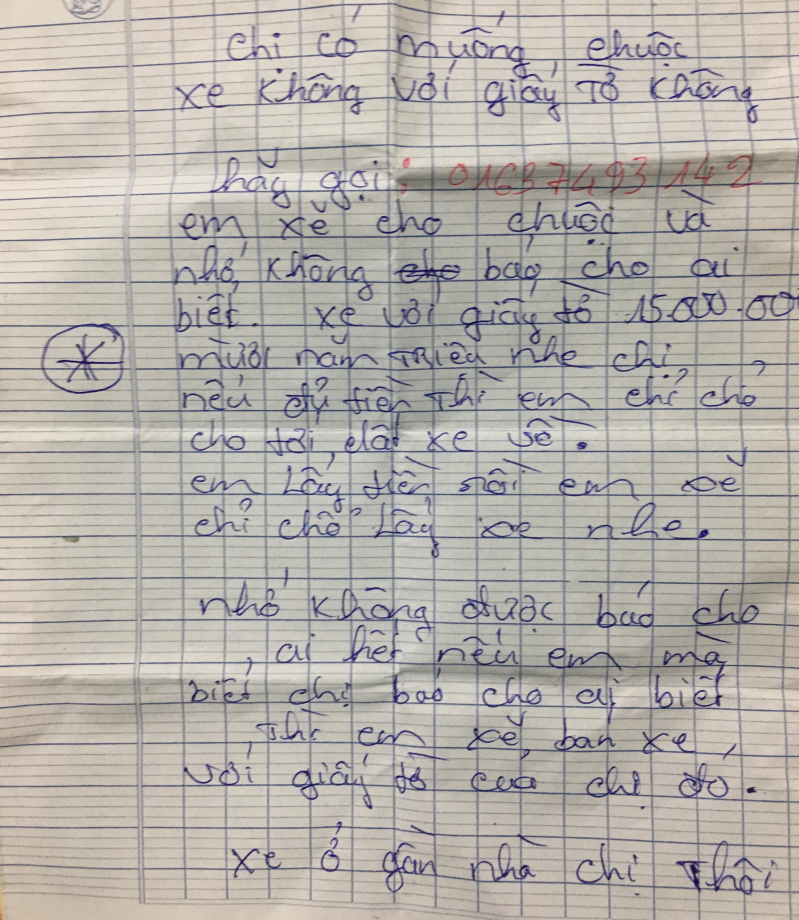 chi có muống, chuộc
xe không với giấy tờ không
hãy gọi: 01637493142
em xẽ cho chuộc và
nhớ, không cho báo cho ai
biết. xe với giấy tờ 15.000.00
mười năm triệu nhe chị
nếu đủ tiền thì em chỉ chỗ
cho tới, dắt xe về.
em Lấy tiền rồi em xẽ
chỉ chỗ Lấy xe nhe.
nhớ không được báo cho
ai hết nếu em mà
biết chị báo cho ai biết
thì em xẽ, ban xe,
với giấy tờ của chị đó.
xe ở gần nhà chị Thôi